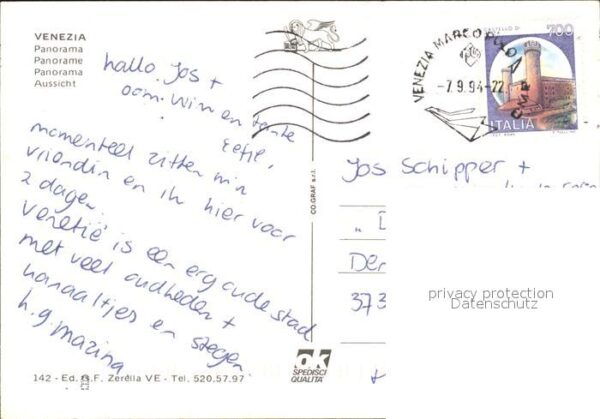 VENEZIA
Panorama
Panorame
Panorama
Aussicht
hallo. Jos +
oom. Wim en tante
momenteel zitten m'n
vriendin en ik hier voor
2 dagen.
Venetië is een erg oude stad
met veel oudheden +
kanaaltjes en stegen.
h.g. Mazina
142 - Ed. G.F. Zerella VE - Tel. 520.57.97
CO.GRAF s.r.l.
OK
SPEDISCI
QUALITA'
VENEZIA MARCO POLO
-7.9.94-22
CASTELLO DI
700
ITALIA
Jos Schipper +
373
privacy protection
Datenschutz